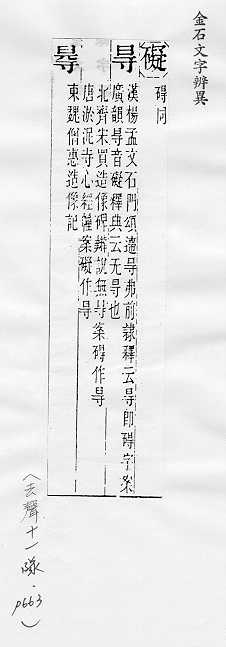 金石文字辨異
礙 碍同
㝵 漢楊孟文石門頌遭㝵弗前隸釋云㝵即碍字案
廣韻㝵音礙釋典云无㝵也
北齊宋買造像碑辯說無㝵案碍作㝵
唐淤泥寺心經罣㝵案礙作㝵
東魏僧惠造像記
(去聲十一隊.
p663)